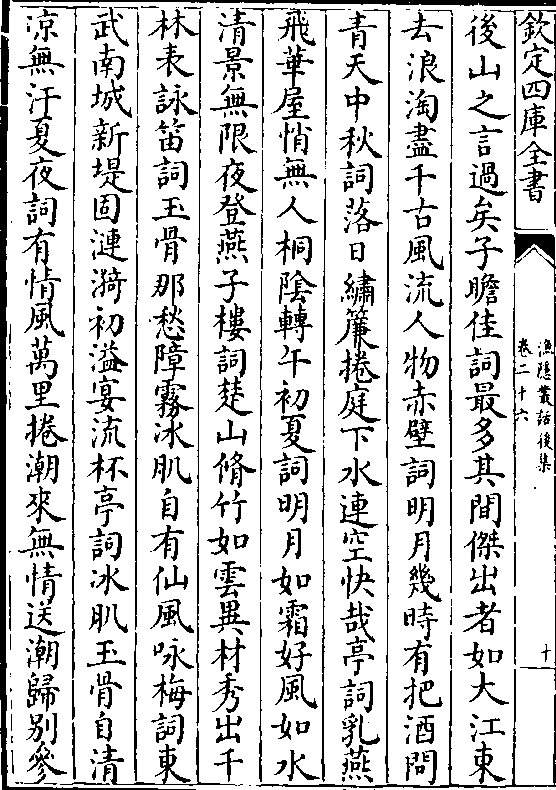 欽定四庫全書
漁隱叢話後集
卷二十六
十
後山之言過矣子瞻佳詞最多其間傑出者如大江東
去浪淘盡千古風流人物赤壁詞明月幾時有把酒問
青天中秋詞落日繡簾捲庭下水連空快哉亭詞乳燕
飛華屋悄無人桐陰轉午初夏詞明月如霜好風如水
清景無限夜登燕子樓詞楚山脩竹如雲異材秀出千
林表詠笛詞玉骨那愁障霧冰肌自有仙風咏梅詞東
武南城新堤固漣漪初溢宴流杯亭詞冰肌玉骨自清
凉無汗夏夜詞有情風萬里捲潮來無情送潮歸別參